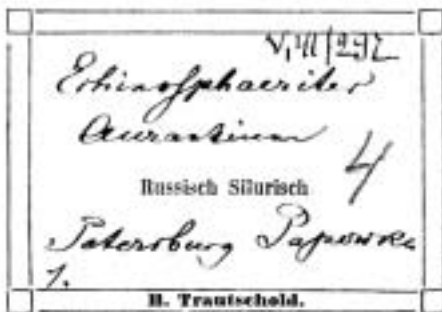 V,III/292
Echinosphaerites
Aurantium
4
Russisch Silurisch
Petersburg Papowka
1.
H. Trautschold.